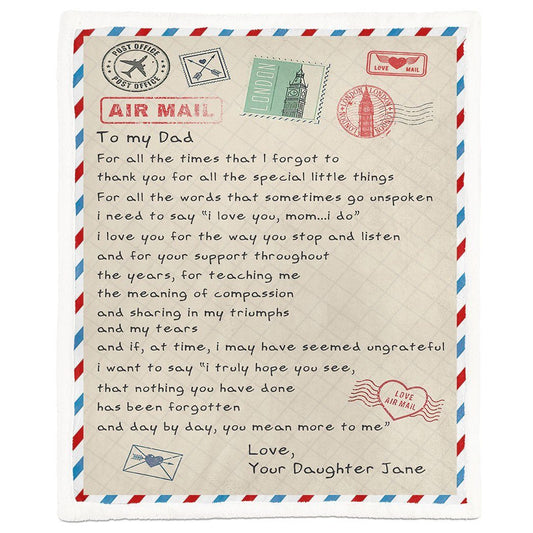 POST OFFICE
POST OFFICE
LONDON
LOVE MAIL
AIR MAIL
LONDON LONDON
LONDON
To my Dad
For all the times that I forgot to
thank you for all the special little things
For all the words that sometimes go unspoken
i need to say "i love you, mom...i do"
i love you for the way you stop and listen
and for your support throughout
the years, for teaching me
the meaning of compassion
and sharing in my triumphs
and my tears
and if, at time, i may have seemed ungrateful
i want to say "i truly hope you see,
that nothing you have done
has been forgotten
and day by day, you mean more to me"
LOVE
AIR MAIL
Love,
Your Daughter Jane